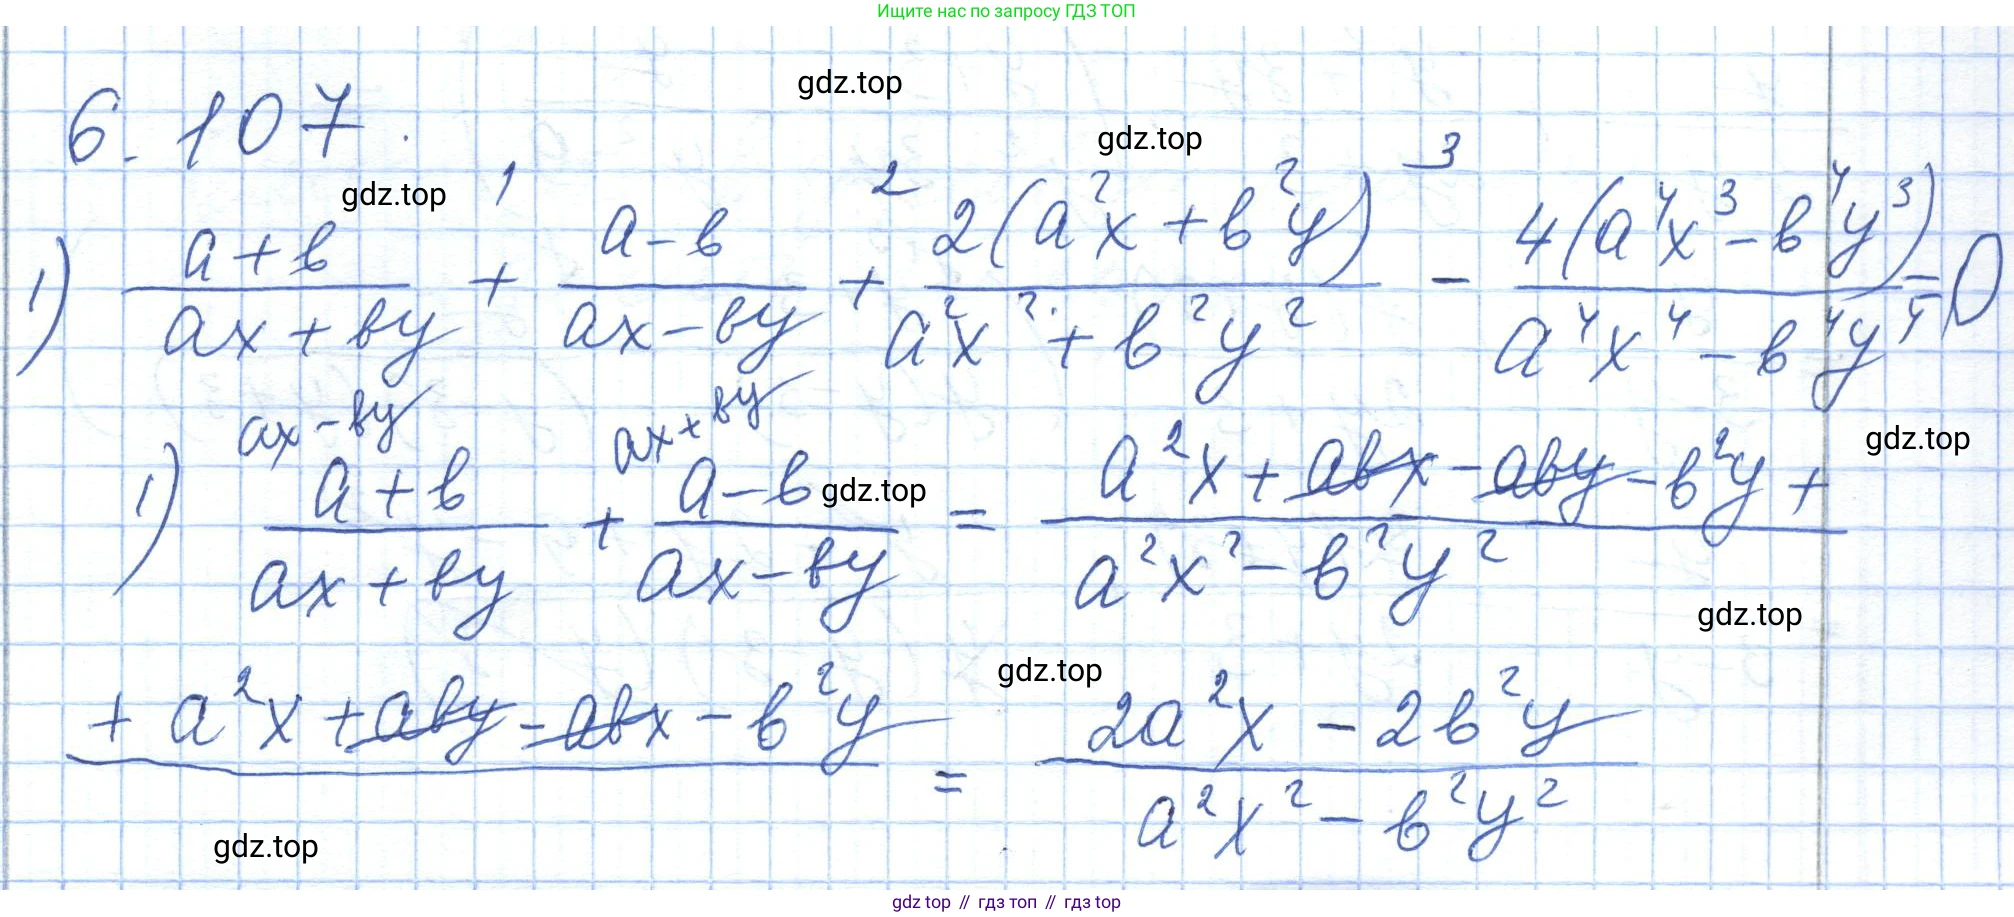 Ищите нас по запросу ГДЗ ТОП
gdz.top
6.107.
gdz.top
gdz.top
1 2 3
1) (a+b)/(ax+by) + (a-b)/(ax-by) + 2(a²x+b²y)/(a²x²+b²y²) - 4(a⁴x³-b⁴y³)/(a⁴x⁴-b⁴y⁴) = 0
ax-by ax+by
gdz.top
1) (a+b)/(ax+by) + (a-b)/(ax-by) = (a²x+abx-aby-b²y+)/(a²x²-b²y²)
gdz.top
gdz.top
gdz.top
+a²x+aby-abx-b²y = (2a²x-2b²y)/(a²x²-b²y²)
gdz.top
gdz top // гдз топ // гдз top